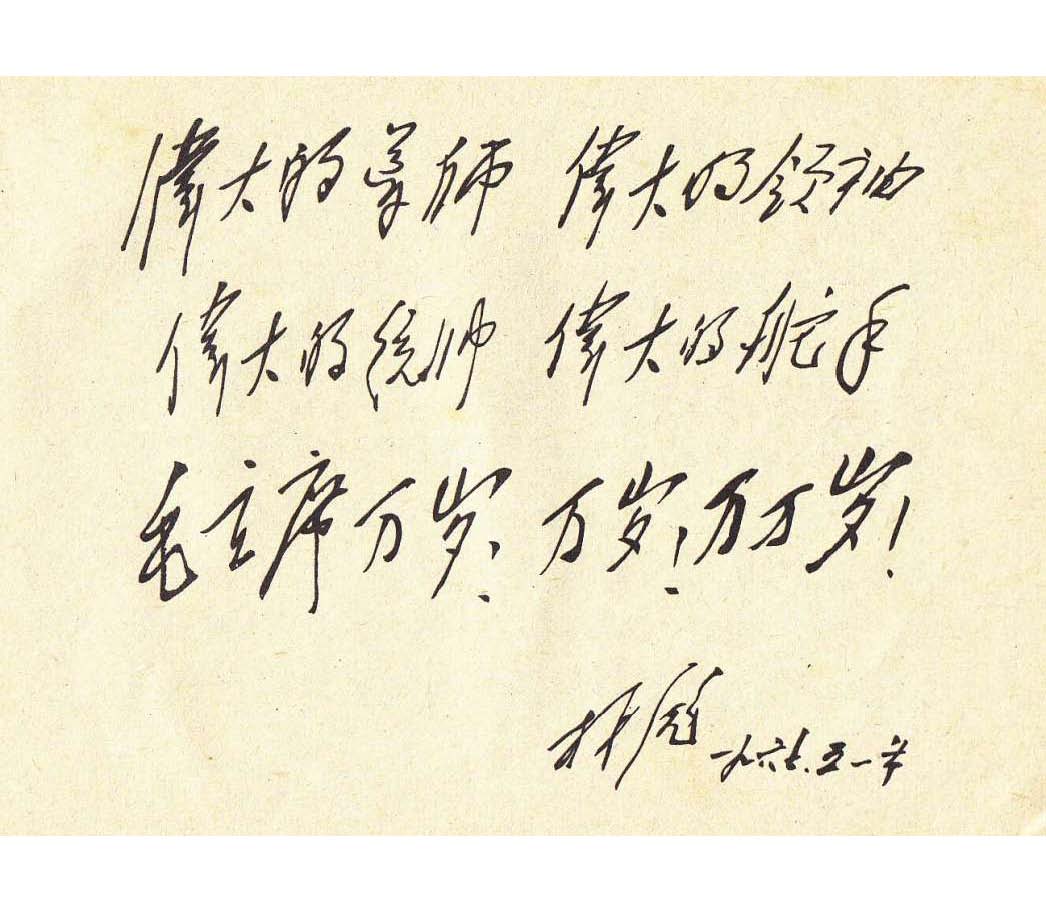 偉大的导师 偉大的领袖
偉大的统帅 偉大的舵手
毛主席万岁、万岁！万万岁！
林彪 一九六七.五.一节